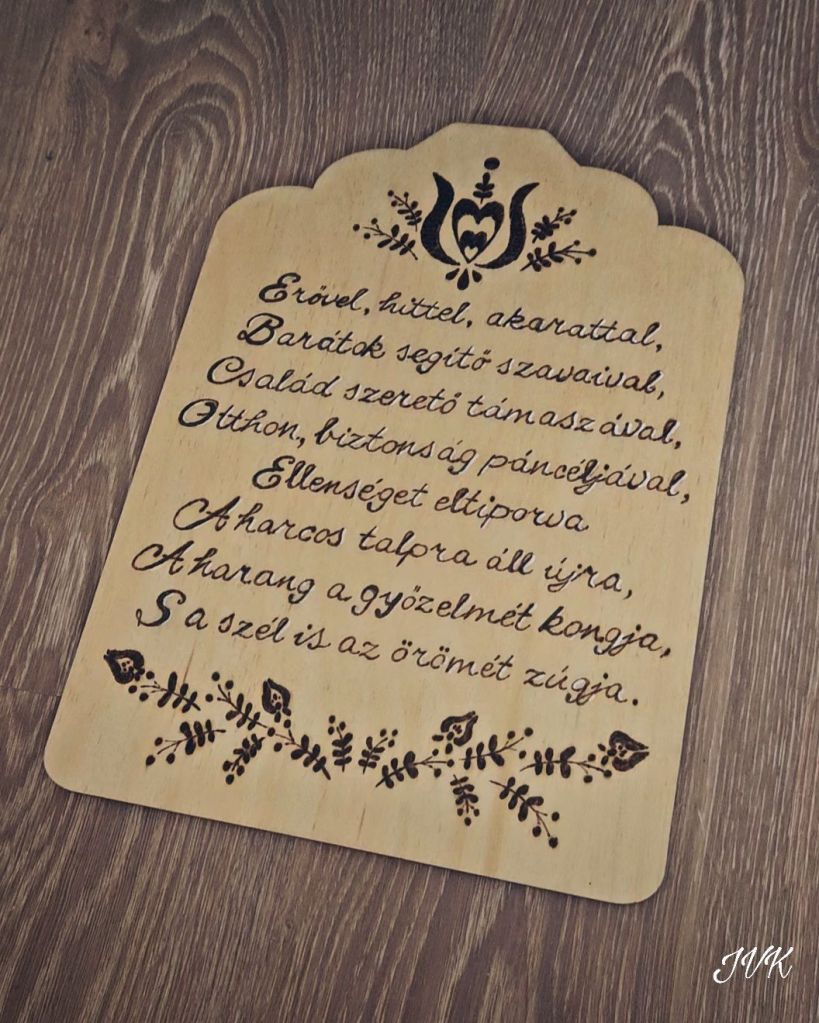 Erővel, hittel, akarattal,
Barátok segítő szavaival,
Család szerető támaszával,
Otthon, biztonság páncéljával,
Ellenséget eltiporva
A harcos talpra áll újra,
A harang a győzelmét kongja,
S a szél is az örömét zúgja.
JVK